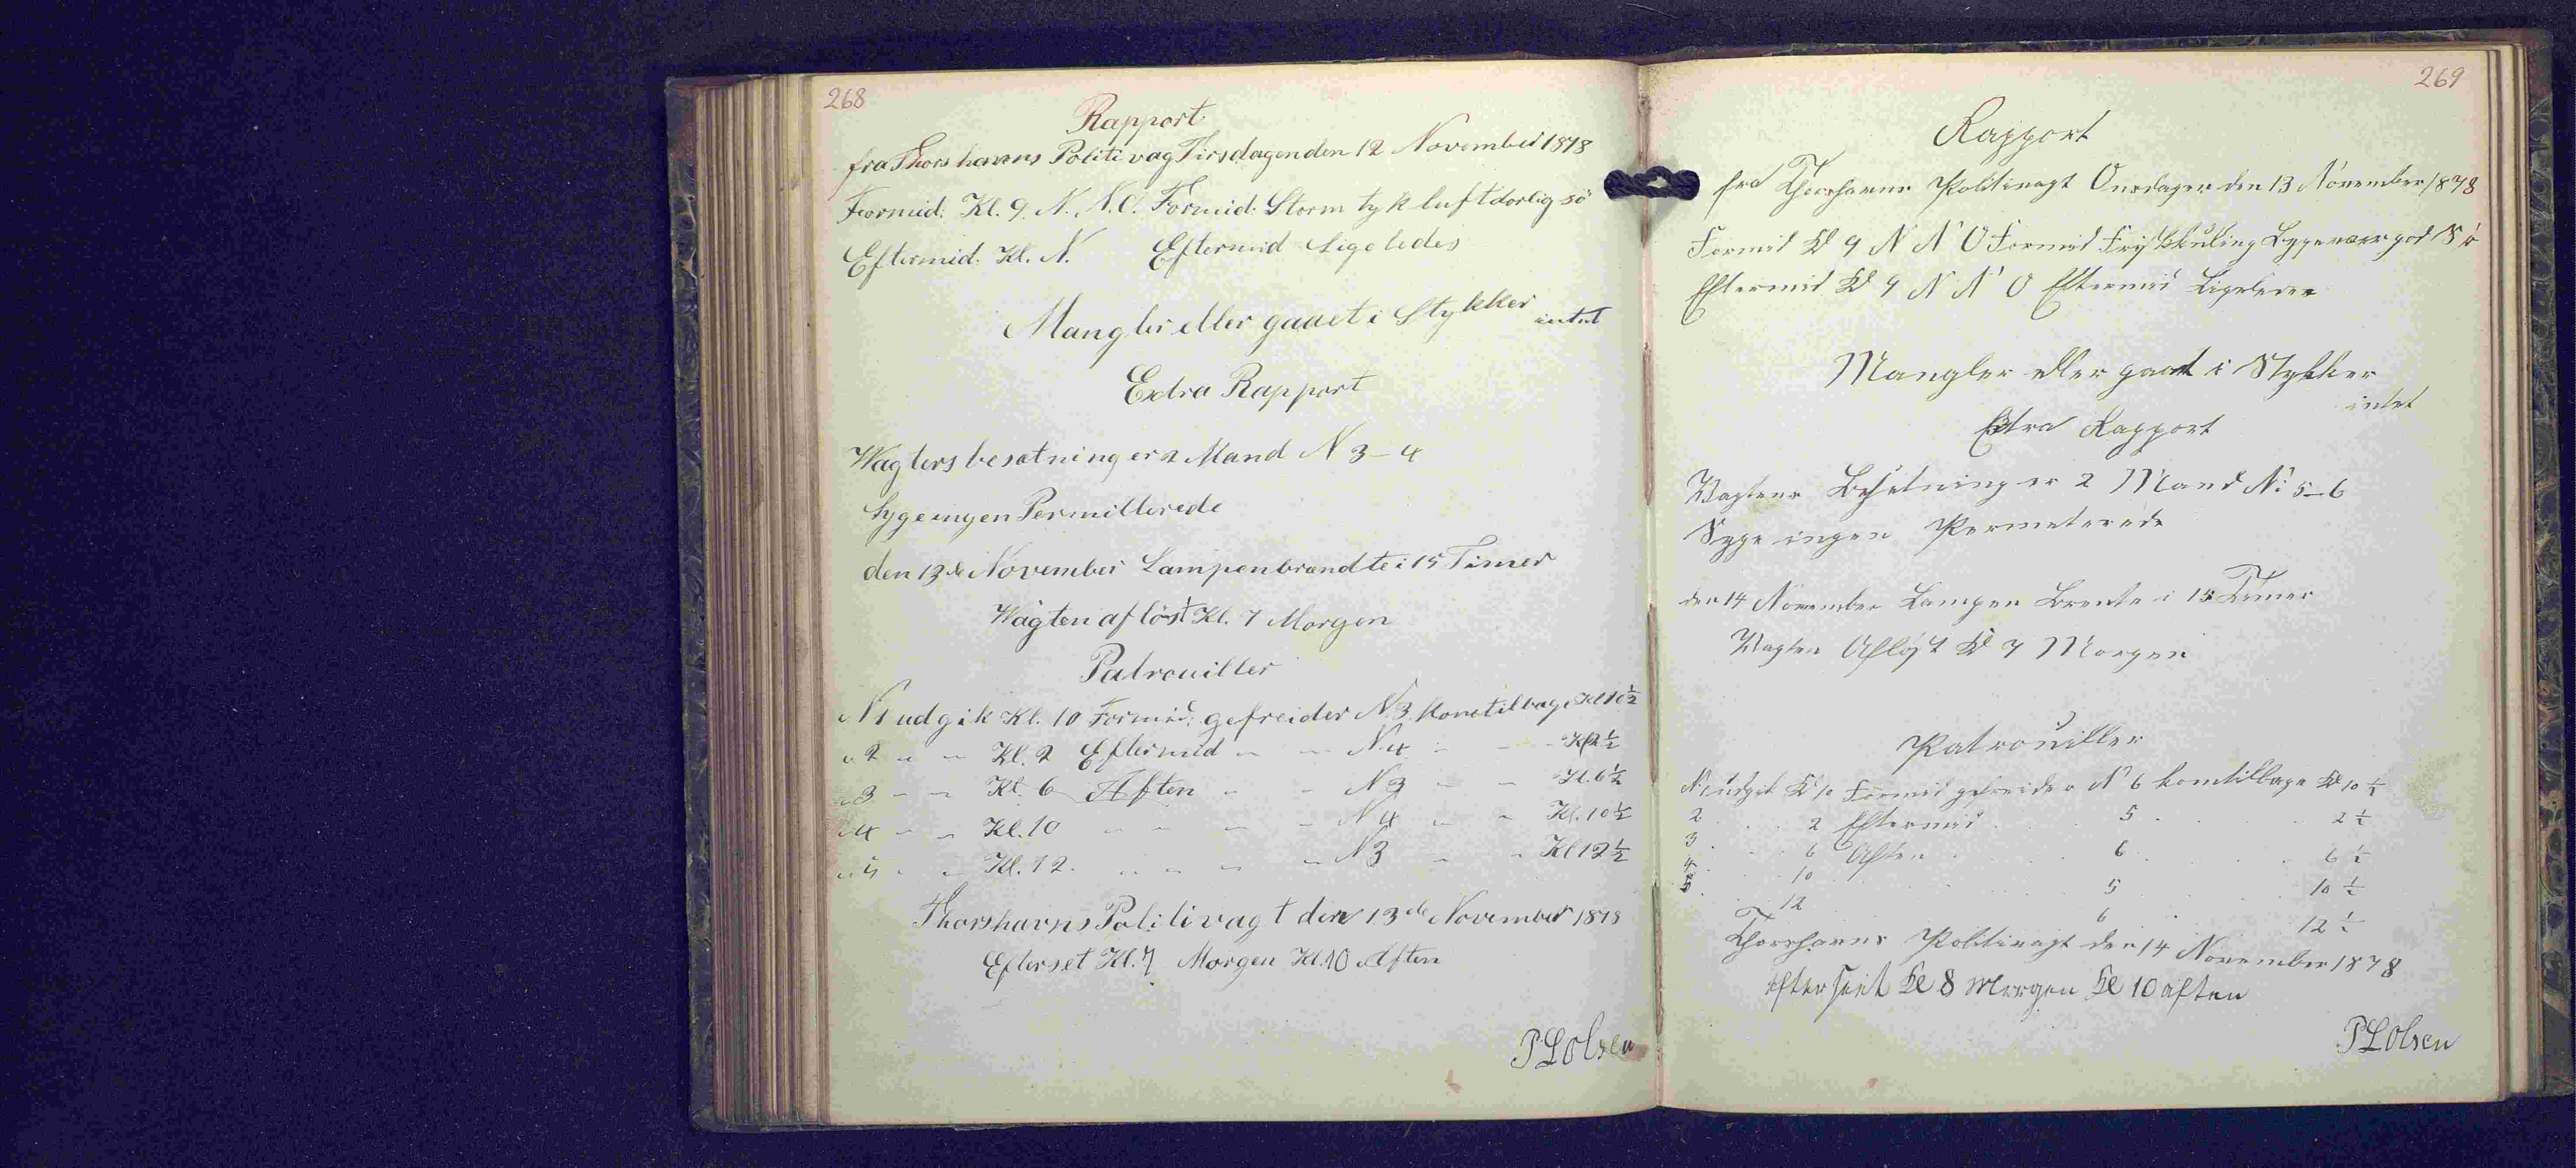 268
Rapport
fra Thorshavns Politi vag Tirsdagen den 12 November 1878
Formid: Kl. 9. N. N.O. Formid: Storm tyk luft dorlig sö
Eftermid. Kl. N. Eftermid Ligeledes
Mangler eller gaaet i Stykker intet
Extra Rapport
Wagters besatning er 2 Mand N 3-4
Syge ingen Permitterede
den 13de November Lampen brændte i 15 Timer
Wagten aflöst Kl. 7 Morgen
Patrouiller
N 1 udgik Kl. 10 Formid: gefreider N. 3 kom tilbage Kl 10½
" 2 " " Kl. 2 Eftermid " " N. 4 " " Kl 2½
" 3 " " Kl. 6 Aften " " N 3 " " Kl. 6½
" 4 " " Kl. 10 " " " " N 4 " " Kl. 10½
" 5 " " Kl. 12. " " " " N 3 " " Kl 12½
Thorshavns Politi vagt den 13de November 1878
Efterset Kl. 7 Morgen Kl. 10 Aften
P L Olsen
269
Rapport
fra Thorshavns Politivagt Onsdagen den 13 November 1878
Formid Kl 9 N N O Formid Frijsk kuling Bygevær god Sö
Eftermid Kl 9 N N O Eftermid Ligeledes
Mangler eller gaaet i Stykker
intet
Extra Rapport
Vagtens Besetning er 2 Mand No 5-6
Syge ingen Permeterede
den 14 November Lampen Brente i 15 Timer
Vagten Afløst Kl 7 Morgen
Patrouiller
N 1 udgik Kl 10 Formid gefreider No 6 kom tilbage Kl 10½
2 . . . 2 Eftermid . . 5 . . . 2½
3 . . . 6 Aften . . 6 . . . 6½
4 . . . 10 . . . 5 . . . 10½
5 . . . 12 . . . 6 . . . 12½
Thorshavns Politivagt den 14 November 1878
efterseet Kl 8 Morgen Kl 10 aften
P L Olsen